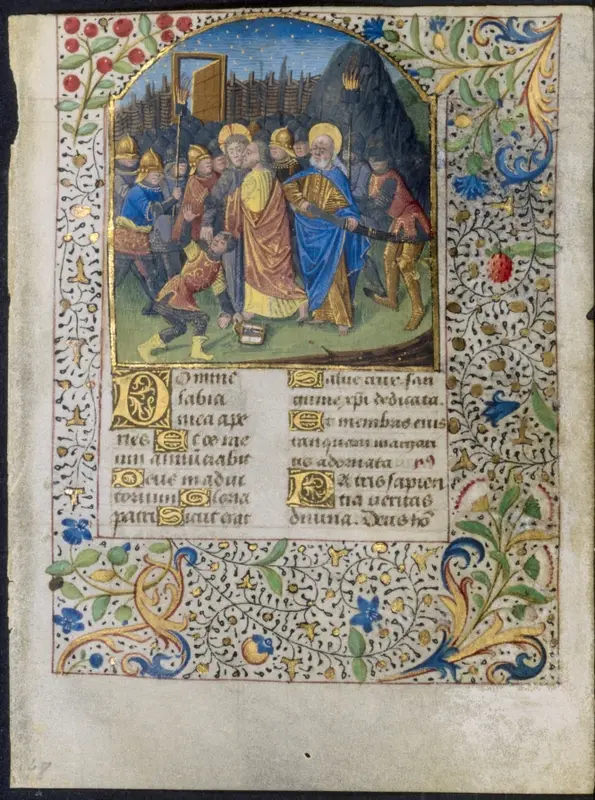 Domine
labia
mea ape
ries Et os me
um annuciabit
Deus in adiu
torium Gloria
patri Sicut erat
Salue crux san
guine xpi dedicata.
Et membris eius
tanquam margari
tis adornata
Patris sapien
tia veritas
diuina. Deus ho